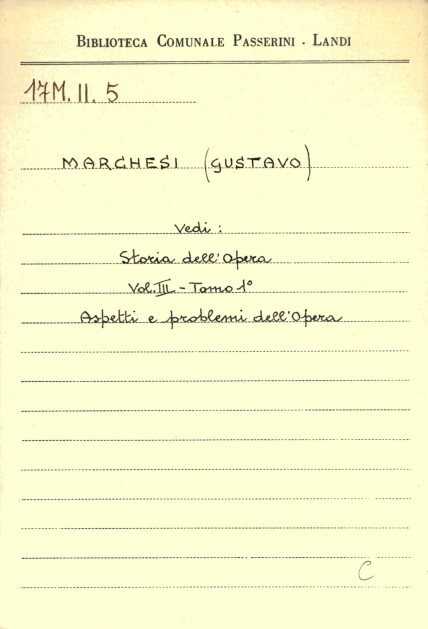 BIBLIOTECA COMUNALE PASSERINI - LANDI
17M. II. 5
MARCHESI (GUSTAVO)
Vedi :
Storia dell'Opera
Vol. III - Tomo 1°
Aspetti e problemi dell'Opera
C